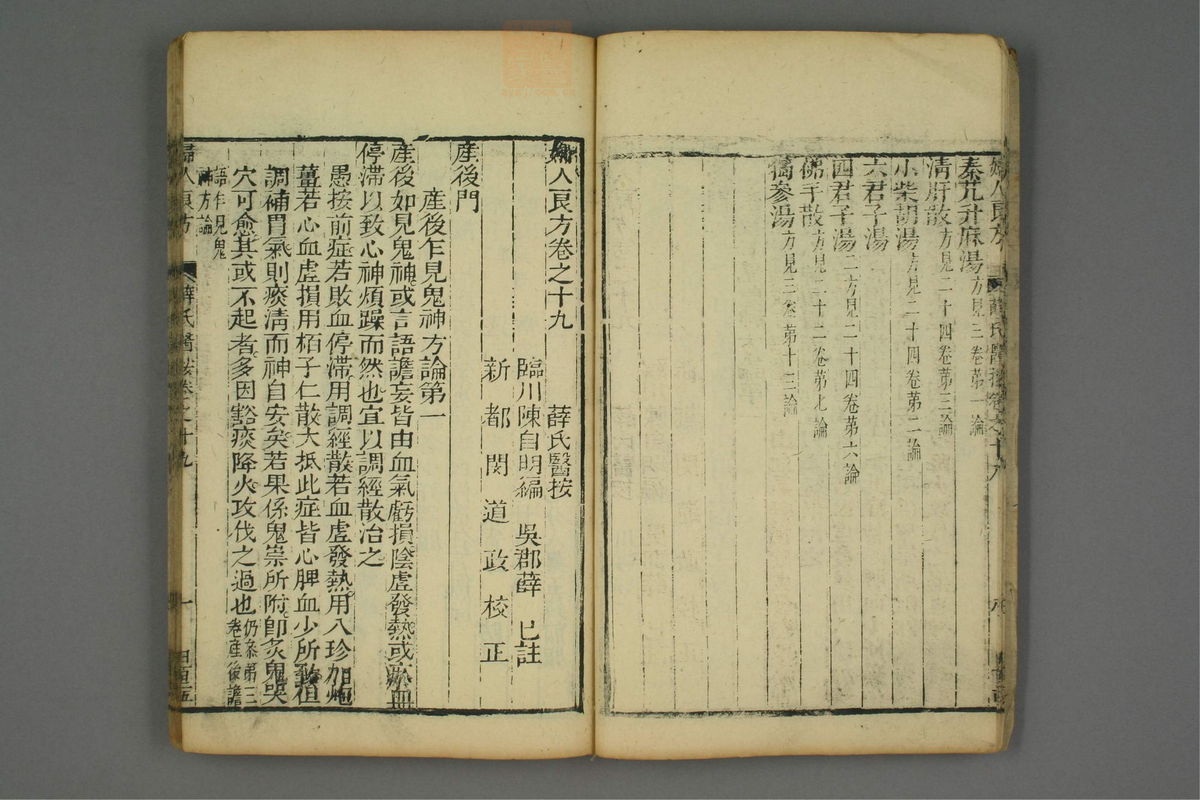 秦艽升麻湯方見三卷第一論
清肝散方見二十四卷第三論
小柴胡湯方見二十四卷第二論
六君子湯
四君子湯二方見二十四卷第六論
佛手散方見二十二卷第九論
獨參湯方見三卷第十三論
婦人良方卷之十九 薛氏醫按
臨川陳自明編 吳郡薛 已註
新都閔道政校正
產後門
產後乍見鬼神方論第一
產後如見鬼神或言語譫妄皆由血氣虧損陰虛發熱或瘀血
停滯以致心神煩躁而然也宜以調經散治之
愚按前症若敗血停滯用調經散若血虛發熱用八珍加炮
薑若心血虛損用栢子仁散大抵此症皆心脾血少所致但
調補胃氣則痰清而神自安矣若果係鬼祟所附卽灸鬼哭
穴可愈其或不起者多因豁痰降火攻伐之過也仍叅第三
卷產後譫
語乍見鬼
神方論
婦人良方 薛氏醫按卷之十九 一